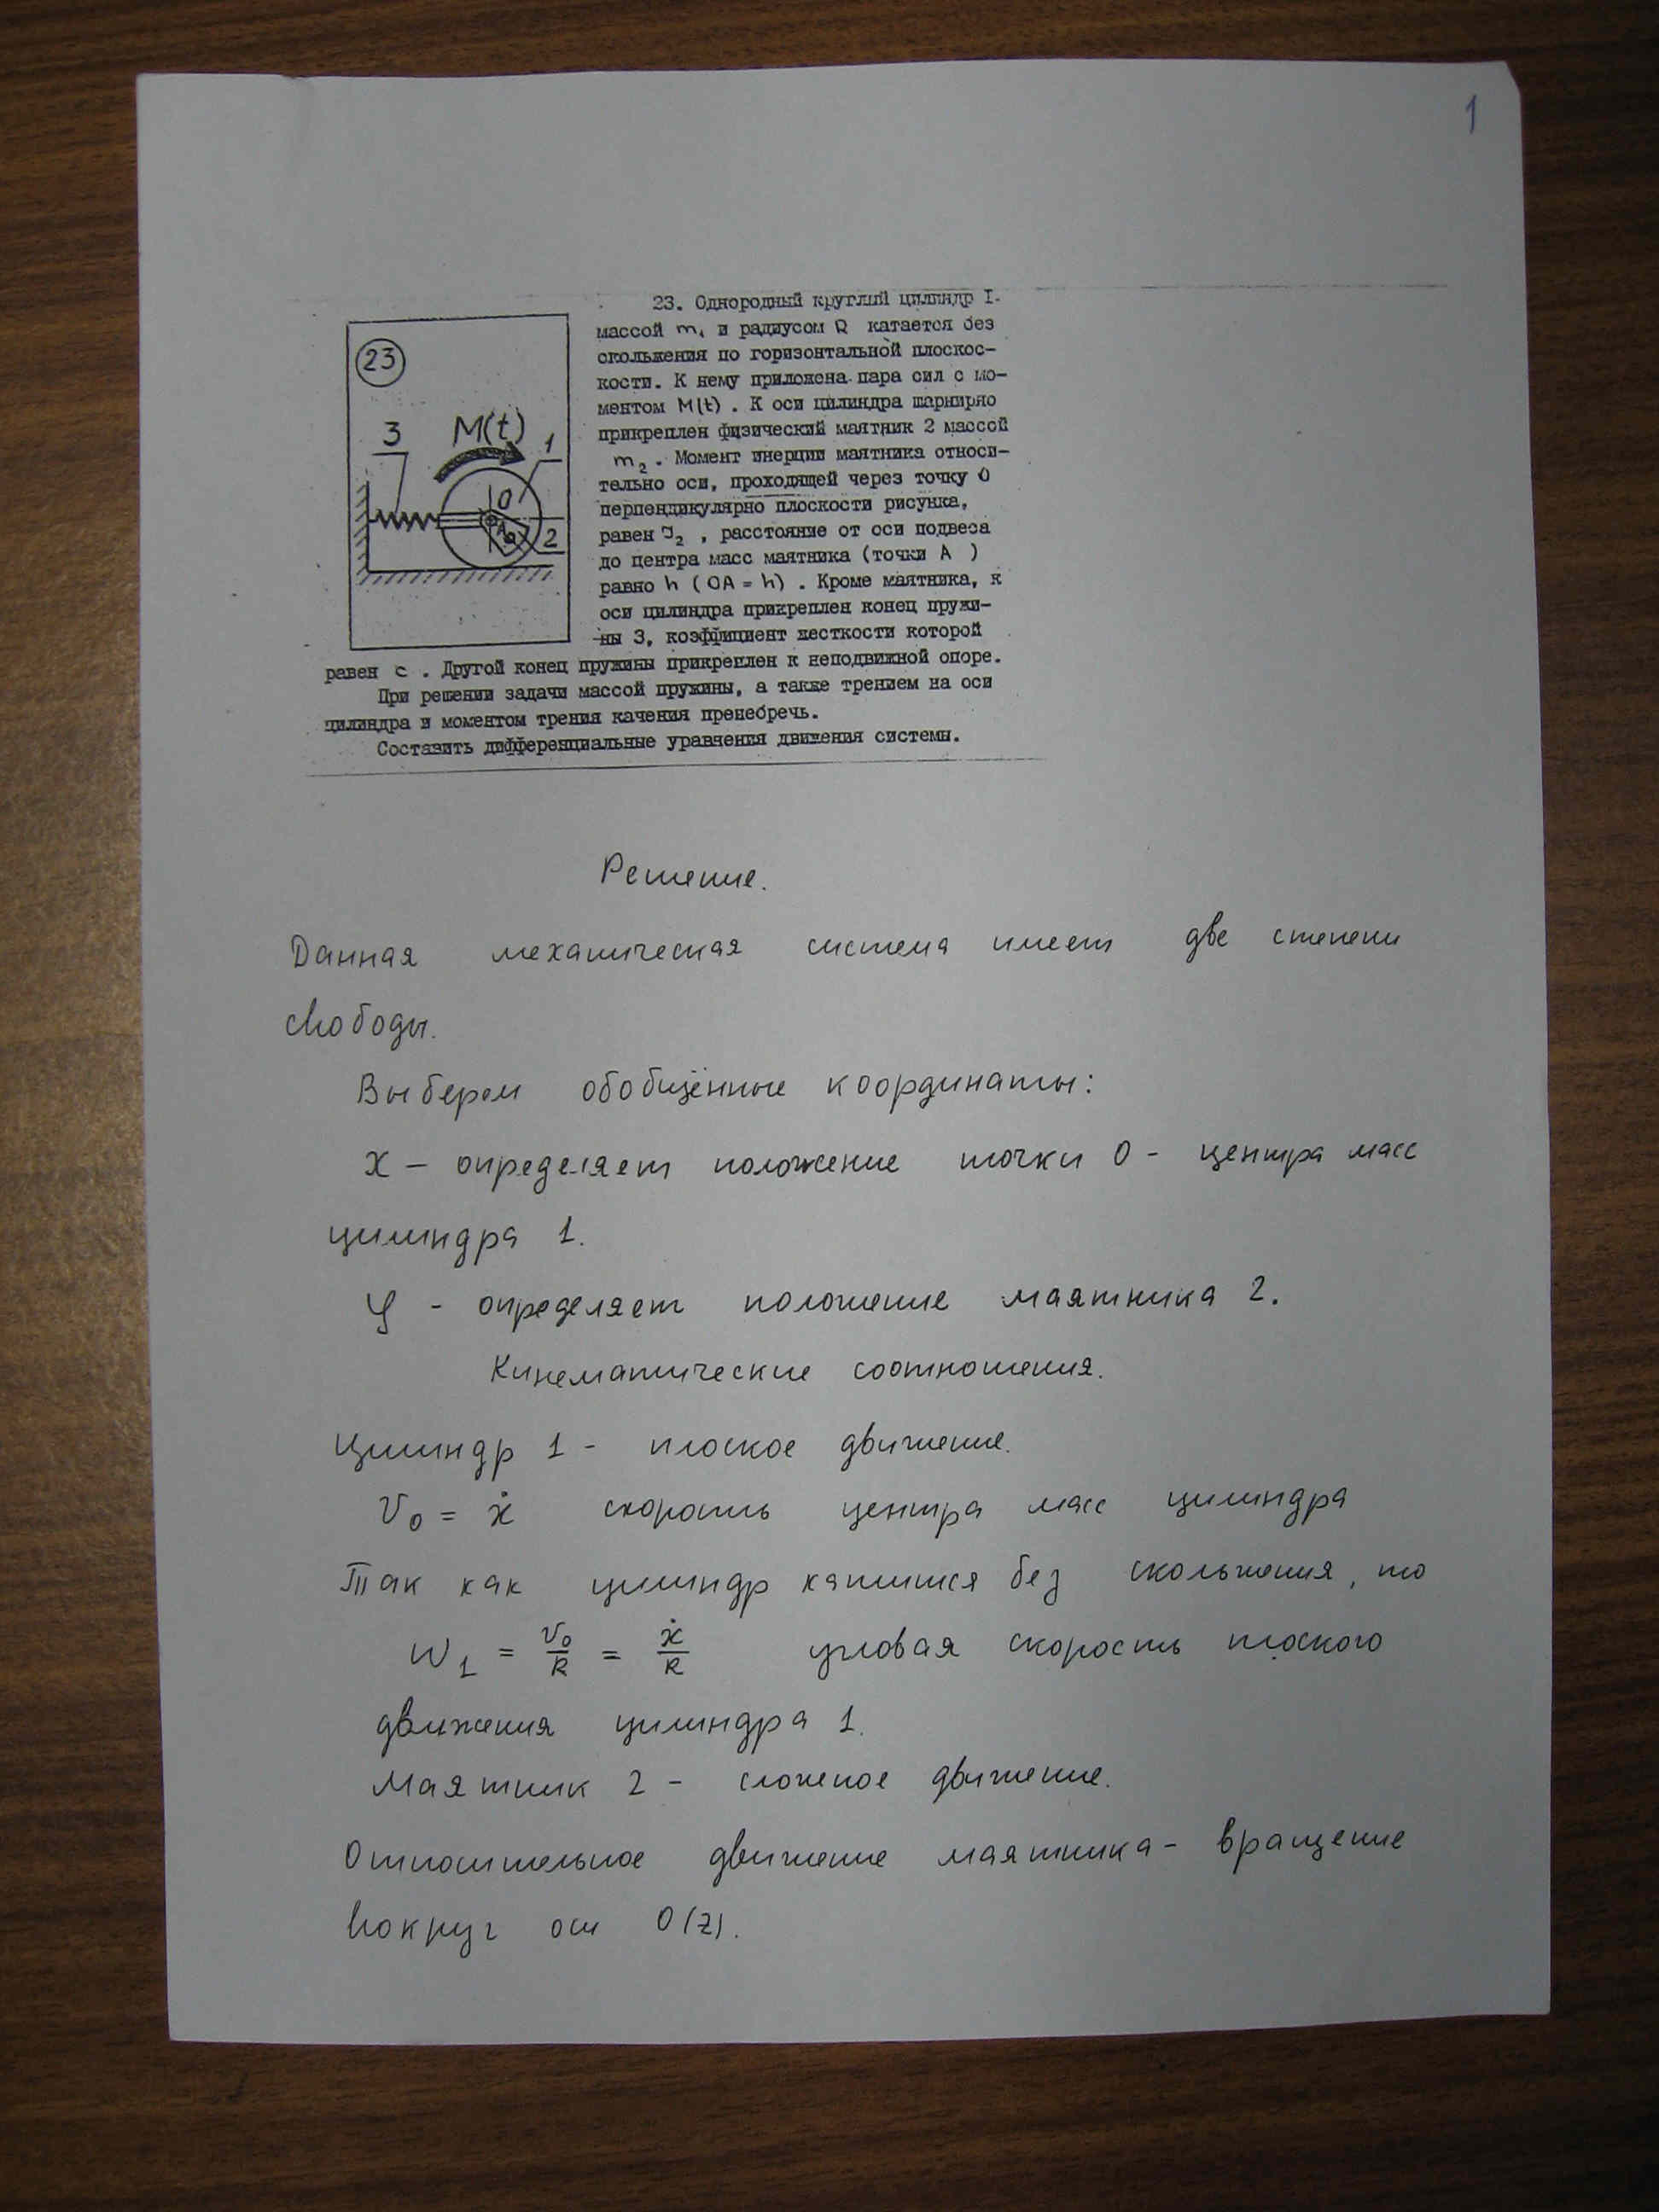 1
23. Однородный круглый цилиндр I
массой m₁ и радиусом R катается без
скольжения по горизонтальной плоскос-
кости. К нему приложена пара сил с мо-
ментом M(t). К оси цилиндра шарнирно
прикреплен физический маятник 2 массой
m₂. Момент инерции маятника относи-
тельно оси, проходящей через точку O
перпендикулярно плоскости рисунка,
равен J₂, расстояние от оси подвеса
до центра масс маятника (точки A)
равно h (OA = h). Кроме маятника, к
оси цилиндра прикреплен конец пружи-
ны 3, коэффициент жесткости которой
равен c. Другой конец пружины прикреплен к неподвижной опоре.
При решении задачи массой пружины, а также трением на оси
цилиндра и моментом трения качения пренебречь.
Составить дифференциальные уравнения движения системы.
23
3 M(t) 1
O
A
2
Решение.
Данная механическая система имеет две степени
свободы.
Выберем обобщённые координаты:
x – определяет положение точки O - центра масс
цилиндра 1.
φ - определяет положение маятника 2.
Кинематические соотношения.
Цилиндр 1 - плоское движение.
v₀ = ẋ скорость центра масс цилиндра
Так как цилиндр катится без скольжения, то
ω₁ = v₀/R = ẋ/R угловая скорость плоского
движения цилиндра 1.
Маятник 2 - сложное движение.
Относительное движение маятника - вращение
вокруг оси O(z).